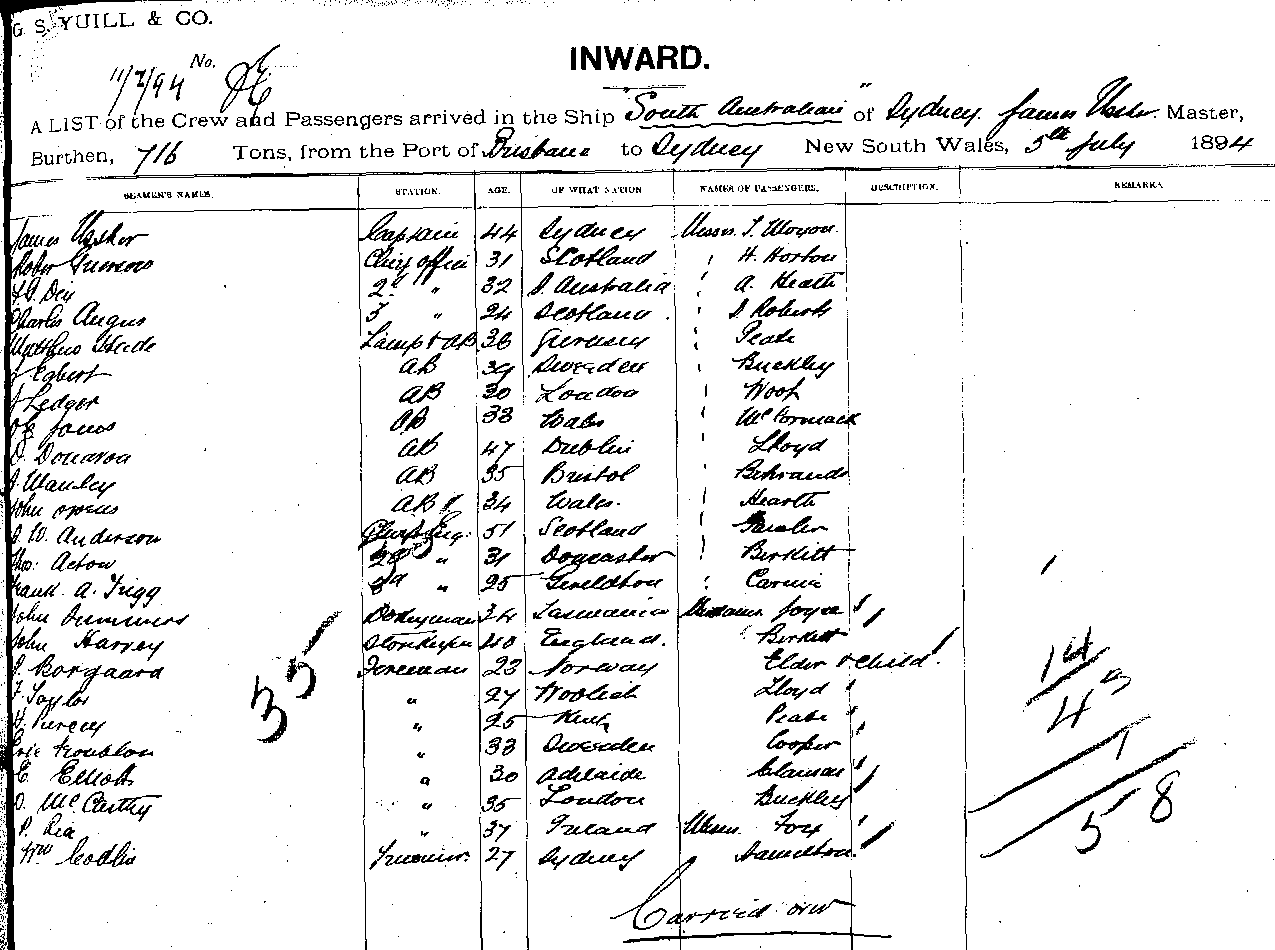 G. S. YUILL & CO.
INWARD.
No.
11/7/94
A LIST of the Crew and Passengers arrived in the Ship "South Australian" of Sydney. James Ussher. Master,
Burthen, 716 Tons, from the Port of Brisbane to Sydney New South Wales, 5th July 1894
SEAMEN'S NAMES. STATION. AGE. OF WHAT NATION NAMES OF PASSENGERS. DESCRIPTION. REMARKS
James Ussher Captain 44 Sydney Messrs. Moyon.
Chief offic 31 Scotland " H. Horton
2d " 32 S. Australia " A. Heath
Charles Angus 3 " 24 Scotland " Roberts
Lamps & AB 36 Guernsey " Peate
Egbert AB 39 Sweden " Buckley
Ledger AB 30 London " Woof
Jones AB 38 Wales " McCormack
D. Donavon AB 47 Dublin " Lloyd
Manley AB 35 Bristol " Behrands
John AB 34 Wales. " Hearth
W. Anderson Chief Eng. 51 Scotland "
Tho. Acton 2d " 31 Doncaster " Birkitt
Frank A. Trigg 3d " 25 Geraldton "
John Summers Donkeyman 34 Tasmania Mesdames Joyce
John Harvey Storekeeper 40 England. " Birkett
Borgaard Foreman 23 Norway Elder & Child.
F. Taylor " 27 Woolich Lloyd
H. Piercey " 25 Kent Peate
Eric " 38 Sweden Cooper
E. Elliott " 30 Adelaide
D. McCarthy " 35 London Buckley
P. Rea " 37 Ireland Messrs. Foy
Wm Codlin 27 Sydney Hamilton.
35
14
43
1
58
Carried over